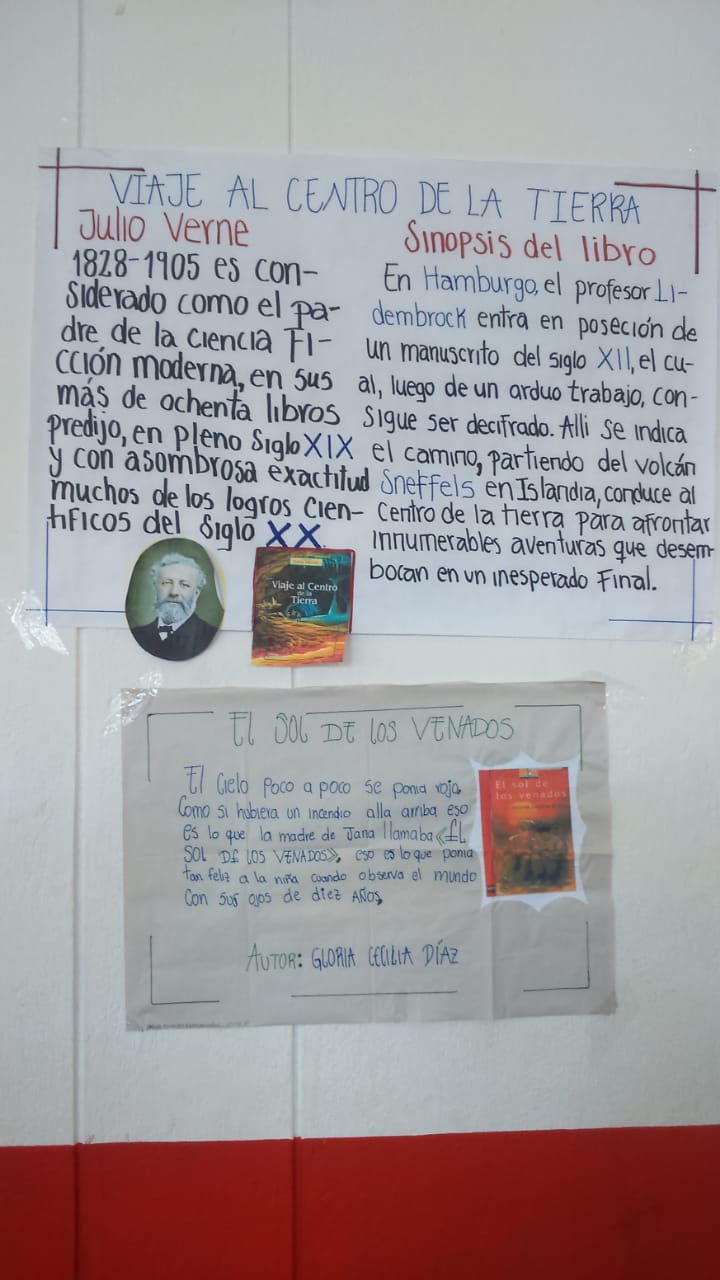 VIAJE AL CENTRO DE LA TIERRA
Julio Verne
1828-1905 es con-
siderado como el pa-
dre de la ciencia Fi-
cción moderna, en sus
más de ochenta libros
Predijo, en pleno Siglo XIX
y con asombrosa exactitud
muchos de los logros cien-
tificos del Siglo XX.
Sinopsis del libro
En Hamburgo, el profesor Li-
dembrock entra en poseción de
un manuscrito del siglo XII, el cu-
al, luego de un arduo trabajo, con-
sigue ser decifrado. Alli se indica
el camino, partiendo del volcán
Sneffels en Islandia, conduce al
centro de la tierra para afrontar
innumerables aventuras que desem-
bocan en un inesperado Final.
Viaje al Centro
de la
Tierra
EL SOL DE LOS VENADOS
El cielo poco a poco se ponia rojo,
Como si hubiera un incendio alla arriba eso
es lo que la madre de Jana llamaba «EL
SOL DE LOS VENADOS», eso es lo que ponia
tan feliz a la niña cuando observa el mundo
con sus ojos de diez AÑOS,
El sol de
los venados
AUTOR: GLORIA CECILIA DÍAZ